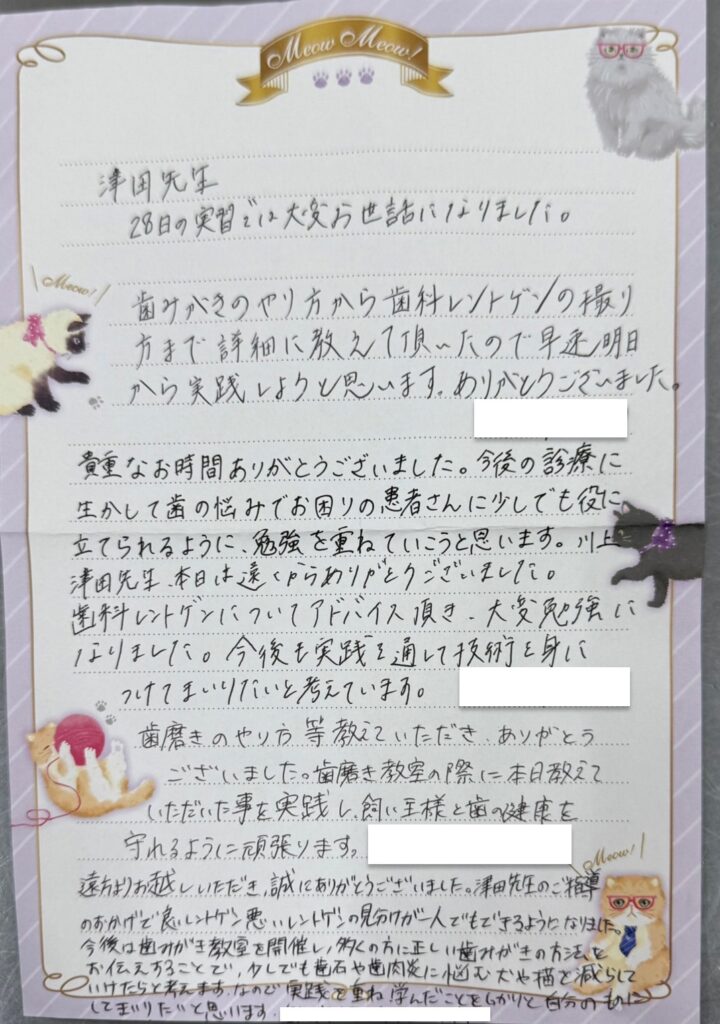 Meow Meow!
津田先生
28日の実習では大変お世話になりました。
Meow!
歯みがきのやり方から歯科レントゲンの撮り
方まで詳細に教えて頂いたので早速明日
から実践しようと思います。ありがとうございました。
貴重なお時間ありがとうございました。今後の診療に
生かして歯の悩みでお困りの患者さんに少しでも役に
立てられるように、勉強を重ねていこうと思います。川上
津田先生、本日は遠くからありがとうございました。
歯科レントゲンについてアドバイス頂き、大変勉強に
なりました。今後も実践を通して技術を身に
つけてまいりたいと考えています。
歯磨きのやり方等教えていただき、ありがとう
ございました。歯磨き教室の際に本日教えて
いただいた事を実践し、飼い主様と歯の健康を
守れるように頑張ります。
Meow!
遠方よりお越しいただき、誠にありがとうございました。津田先生のご指導
のおかげで良いレントゲン悪いレントゲンの見分けが一人でもできるようになりました。
今後は歯みがき教室を開催し、多くの方に正しい歯みがきの方法を
お伝えすることで、少しでも歯石や歯肉炎に悩む犬や猫を減らして
いけたらと考えます。なので実践を重ね、学んだことをしっかりと自分のものに
してまいりたいと思います。